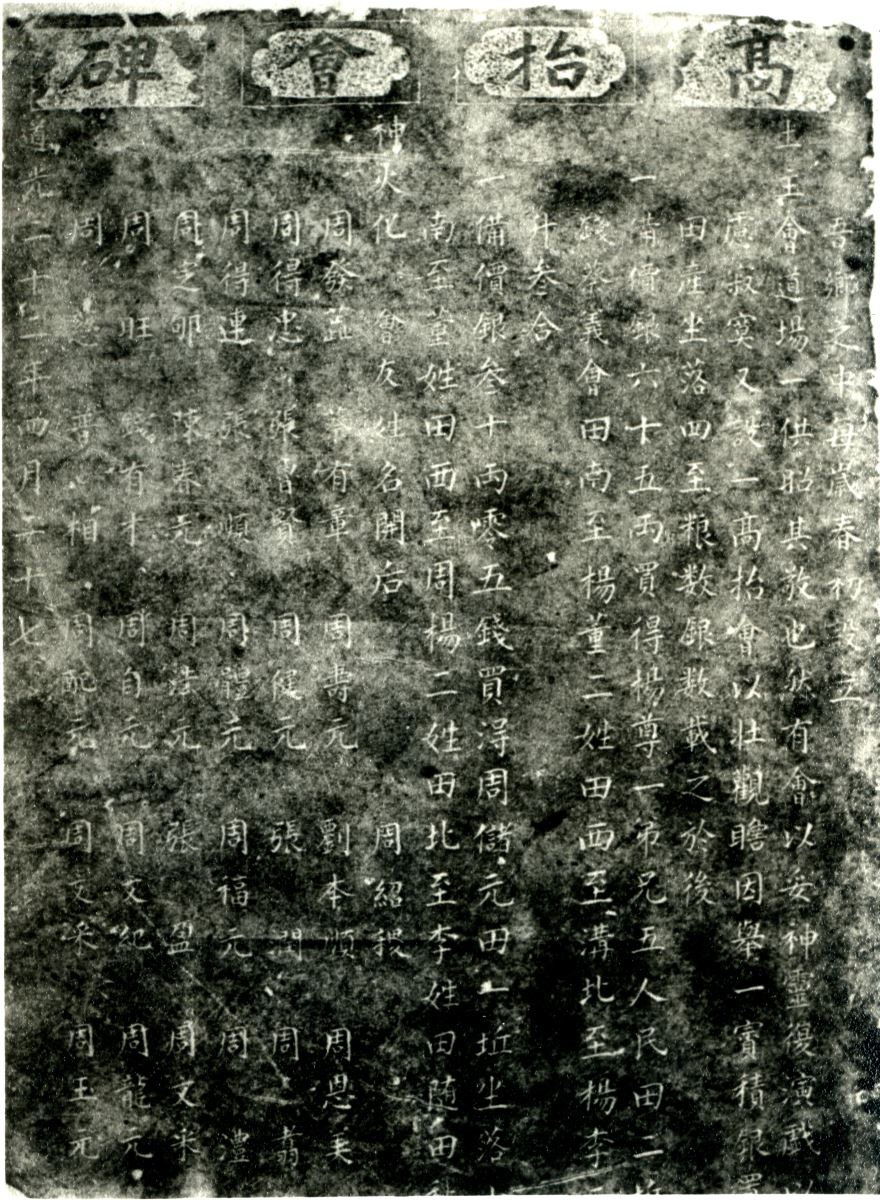 高抬會碑
吾鄉之中每歲春初設立
土王會道場一供昭其敬也然有會以妥神靈復演戲以
慮寂寞又設一高抬會以壯觀瞻因舉一實積銀
田產坐落四至粮数銀数載之於後
一備價銀六十五両買得楊尊一弟兄五人民田二坵
錢蔡義會田南至楊董二姓田西至溝北至楊李
升叁合
一備價銀叁十両零五錢買淂周儲元田一坵坐落
南至董姓田西至周楊二姓田北至李姓田随田
神火化 會友姓名開后 周紹稷
周發 有章 周壽元 劉本順 周恩美
周得忠 張曾賢 周健元 張 周翥
周得連 張順 周體元 周福元 周澧
周芝 陳春元 周法元 張盈 周文来
周旺 有才 周自元 周文纪 周龍元
周 普相 周配元 周文采 周玉元
道光二十二年四月二十七